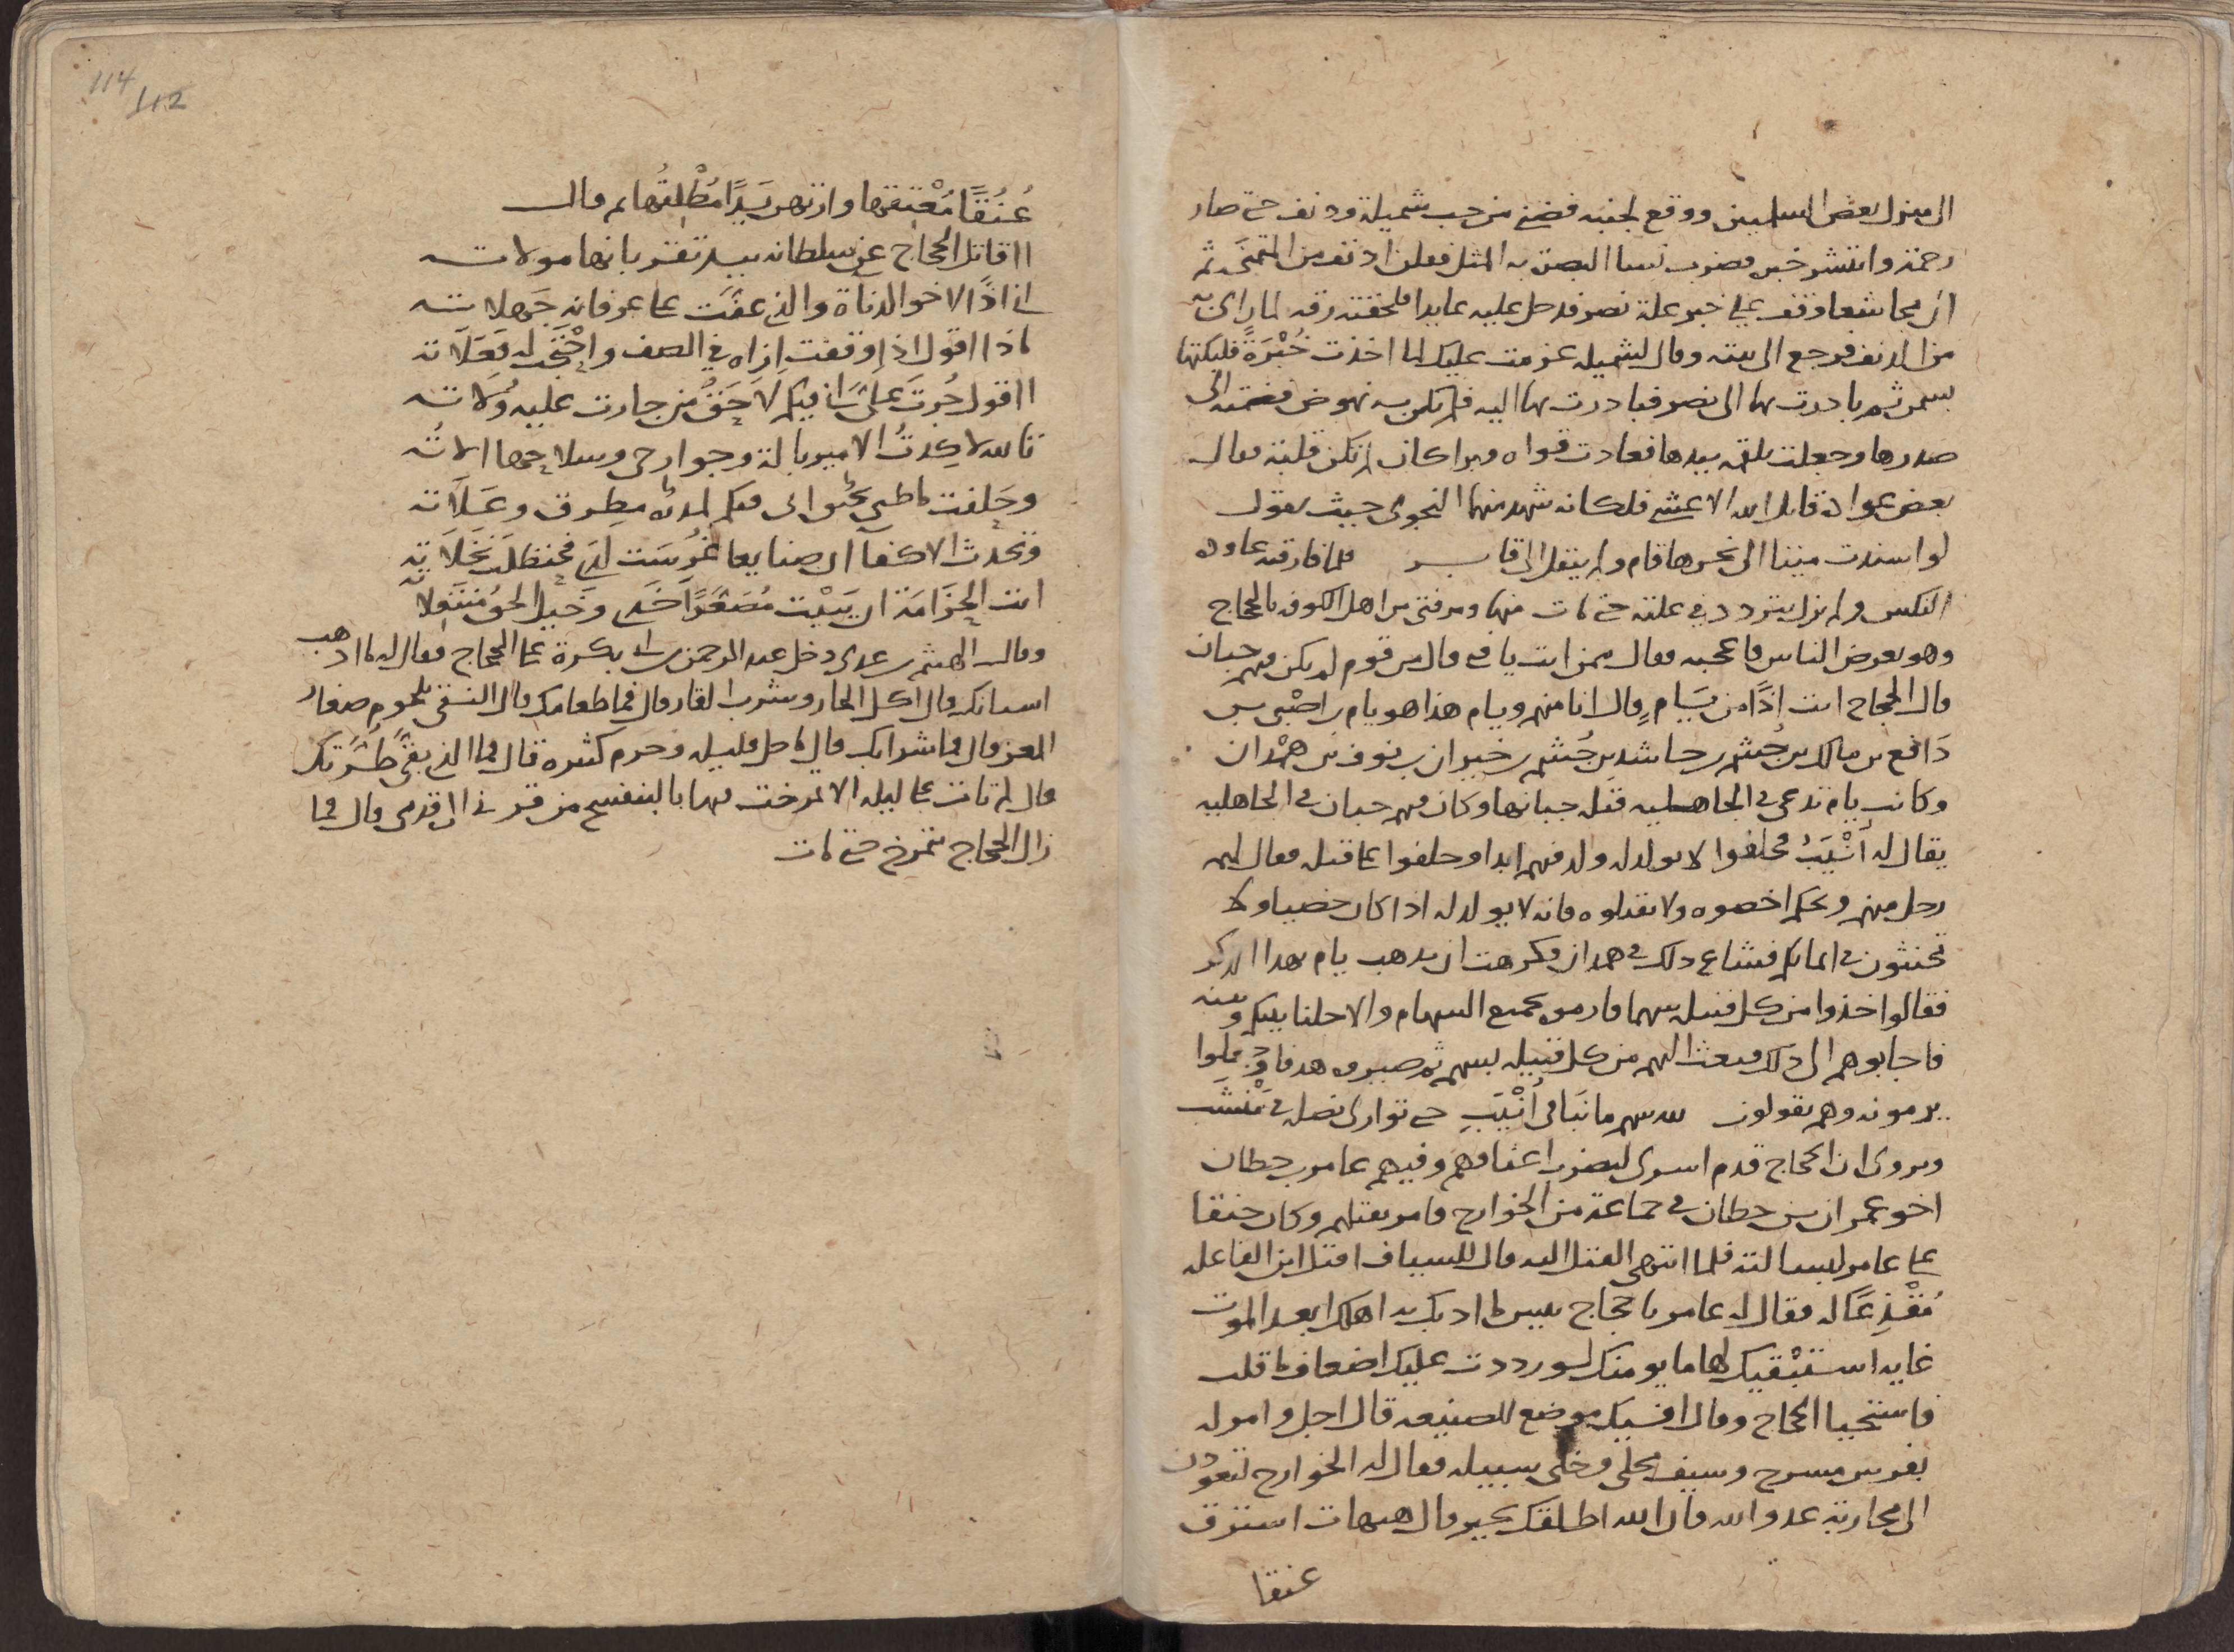 الى منزل بعض السلميين ووقع لجنبه فضني من حب شميلة ودنف حتى صار
رحمة وانتشر خبره فضرب نساء البصرة به المثل فقلن ادنف من المتمنى ثم
ان مجاشعا وقف على خبر علة نصر فدخل عليه عايدا فلحقته رقة لما راى به
من الدنف فرجع الى بيته وقال لشميله عزمت عليك لما اخذت خبزة فلبكتها
بسمن ثم بادرت بها الى نصر فبادرت بها اليه فلم يكن به نهوض فضمته الى
صدرها وجعلت تلقمه بيدها فعادت قواه وبرا كان لم تكن قلبة فقال
بعض عواده قاتل الله الاعشى فلكانه شهد منهما النجوى حيث يقول
لو اسندت ميتا الى نحرها قام ولم ينقل الى قابر فلما فارقته عاوده
النكس ولم يزل يتردد في علته حتى مات منها ومر فتى من اهل الكوفه بالحجاج
وهو يعرض الناس فاعجبه فقال ممن انت يا فتى قال من قوم لم يكن فيهم جبان
قال الحجاج انت اذًا من يَام قال انا منهم ويام هذا هو يام بن اصْبى بن
دَافع بن مالك بن جُشَم بن حاشد بن جُشَم بن خيران بن نوف بن هَمْدان
وكانت يام تدعى في الجاهليه قتلة جبانها وكان فيهم جبان في الجاهليه
يقال له اُنْيَبُ فحلفوا لا يولد له ولد فيهم ابدا وحلفوا على قتله فقال لهم
رجل منهم ويحكم اخصوه ولا تقتلوه فانه لا يولد له اذا كان خصيا ولا
تحنثون في ايمانكم فشاع ذلك في همدان فكرهت ان يذهب يام بهذا الذكر
فقالوا خذوا من كل قبيله سهما فارموه بجميع السهام والا حلنا بينكم وبينه
فاجابوهم الى ذلك فبعث اليهم من كل قبيله بسهم ثم صيروه هدفا وجعلوا
يرمونه وهم يقولون لله سهم ما نَبَا في اُنْيَبِ حتى توارى نصله في مَنْشَب
ويروى ان الحجاج قدم اسرى ليضرب اعناقهم وفيهم عامر بن حطان
اخو عمران بن حطان في جماعة من الخوارج فامر بقتلهم وكان حنقا
على عامر لبسالته فلما انتهى القتل اليه قال للسياف اقتل ابن الفاعله
مُقْذِعًا له فقال له عامر يا حجاج بيس ما ادبك به اهلك ابعد الموت
غايه استبْقيك لها ما يومنك لو رددت عليك اضعاف ما قلت
فاستحيا الحجاج وقال افيك موضع للصنيعه قال اجل وامر له
بفرس مسرج وسيف محلى وخلى سبيله فقال له الخوارج لتعودن
الى محاربة عدو الله فان الله اطلقك بخير قال هيهات استرق
عنقا
عُنُقًا مُعْتِقها وارتهن يَدًا مُطْلِقُها ثم قال
ااقاتل الحجاج عن سلطانه بيد تقر بانها مولاته
اني اذًا لاخو الدناة والذي عفت على عرفانه جَهلاته
ماذا اقول اذا وقفت ازاه في الصف واحْتجّت له فَعَلاته
ااقول جُرتَ عَلَىَّ اني فيكم لاحَقُّ من جارت عليه وُلاته
تالله لا كِدتُ الامير بالة وجوارحي وسلاحها الاته
وتحدث الاكفاء ان صنايعا غُرِسَت لَدَي فحنظلَت نخلاته
وقال الهيثم بن عدى دخل عبد الرحمن بن ابي بكرة على الحجاج فقال له ما اذهب
اسنانك قال اكل الحار وشرب القار قال فما طعامك قال النقى بلحوم صغار
المعز قال فما شرابك قال ما حل قليله وحرم كثيره قال فما الذي بقى طُرّتك
قال لم تات على ليله الا تمرخت فيها بالبنفسج من قرني الى قدمى قال فما
زال الحجاج يتمرخ حتى مات
114
112